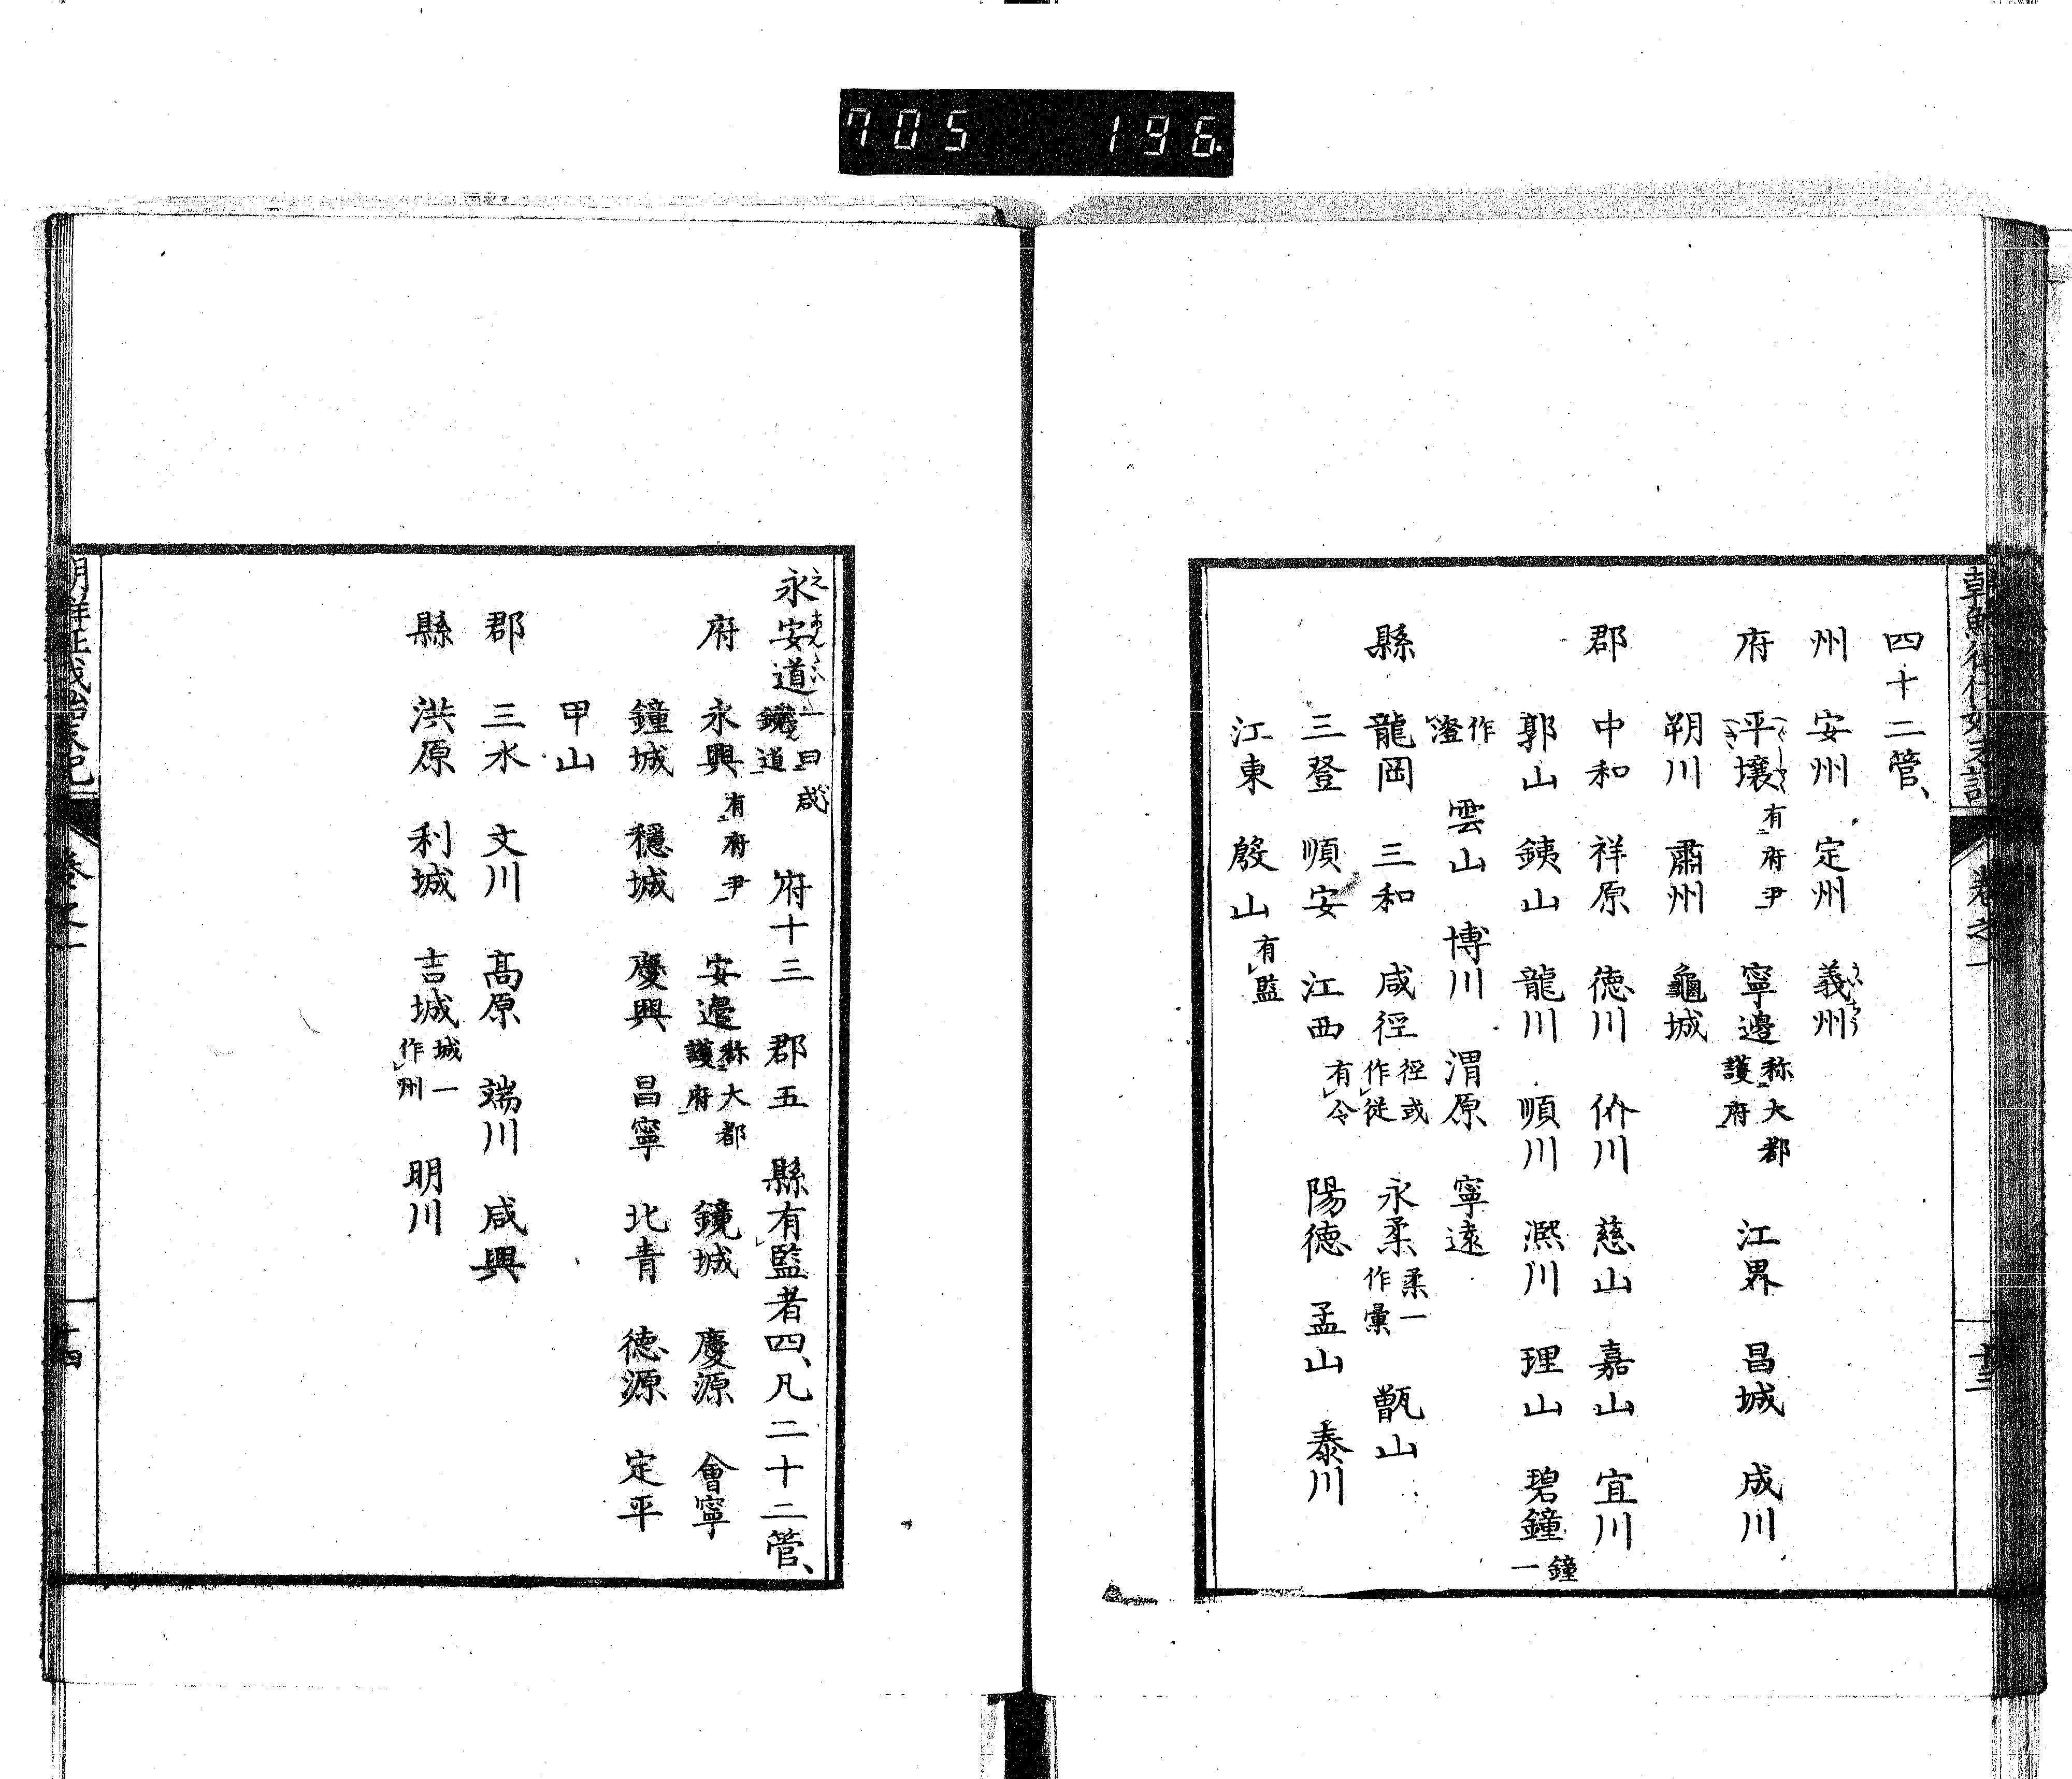 705 196
朝鮮征伐始末記 卷之一 十三
四十二管、
州 安州 定州 義州
府 平壤有府尹 寧邊称大都護府 江界 昌城 成川
朔川 肅州 龜城
郡 中和 祥原 徳川 价川 慈山 嘉山 宜川
郭山 銕山 龍川 順川 凞川 理山 碧鐘鐘一
作澄 雲山 博川 渭原 寧遠
縣 龍岡 三和 咸徑徑或作従 永柔柔一作彙 甑山
三登 順安 江西有令 陽徳 孟山 泰川
江東 殷山有監
永安道一曰咸鏡道 府十三 郡五 縣有監者四、凡二十二管、
府 永興有府尹 安邉称大都護府 鏡城 慶源 會寧
鐘城 穩城 慶興 昌寧 北青 徳源 定平
甲山
郡 三水 文川 髙原 端川 咸興
縣 洪原 利城 吉城城一作州 明川
朝鮮征伐始末記 卷之一 十四